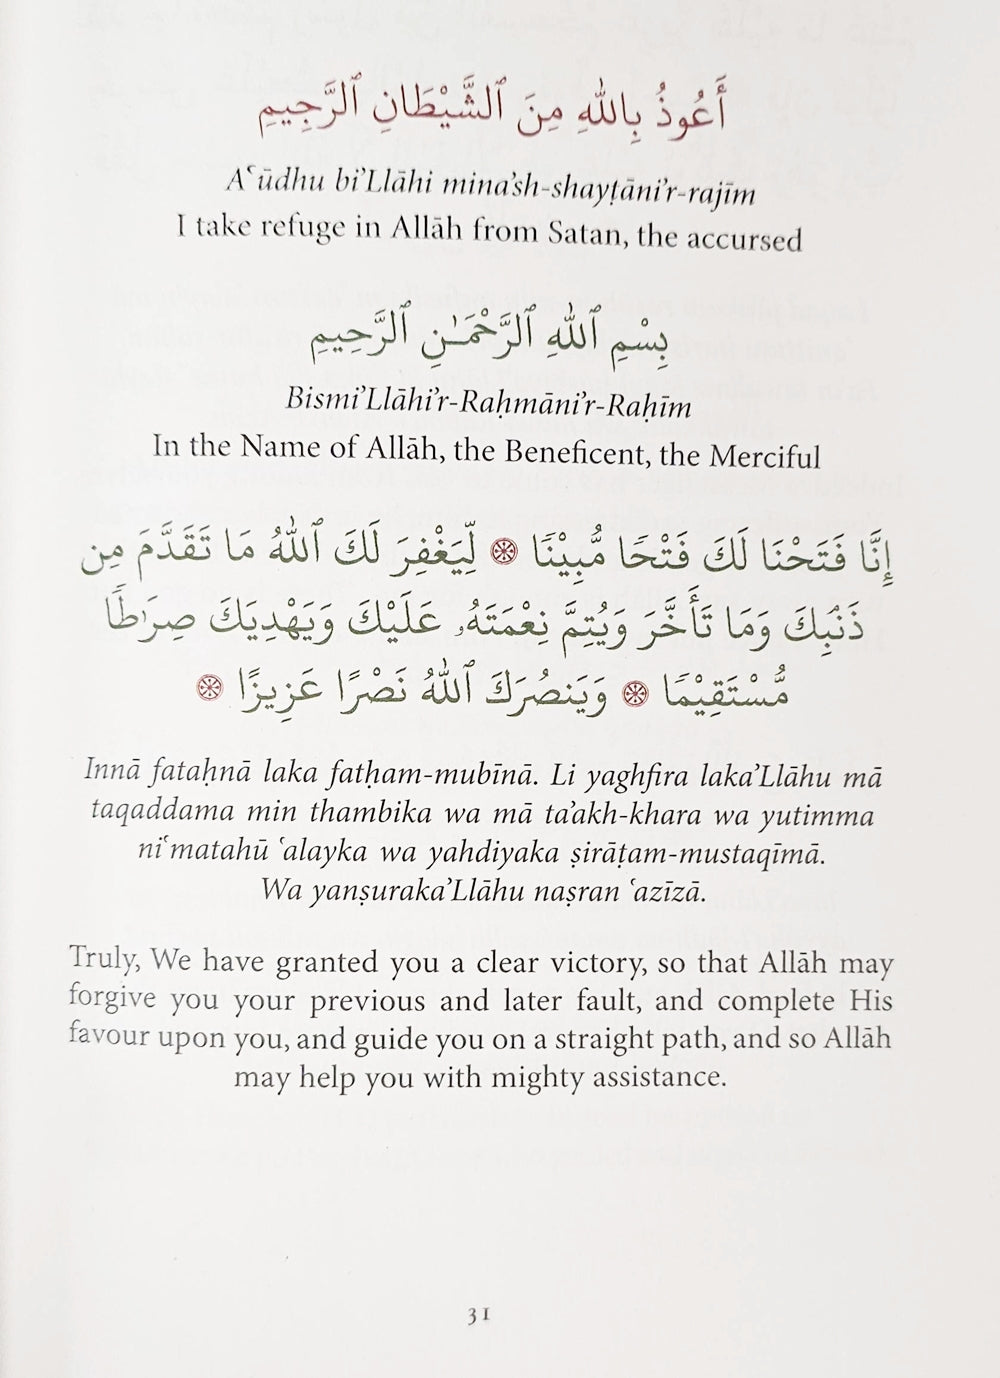 أَعُوذُ بِاللهِ مِنَ ٱلشَّيْطَانِ ٱلرَّجِيمِ
Aʿūdhu bi’Llāhi mina’sh-shayṭāni’r-rajīm
I take refuge in Allāh from Satan, the accursed
بِسْمِ ٱللهِ ٱلرَّحْمَـٰنِ ٱلرَّحِيمِ
Bismi’Llāhi’r-Raḥmāni’r-Raḥīm
In the Name of Allāh, the Beneficent, the Merciful
إِنَّا فَتَحْنَا لَكَ فَتْحًا مُّبِيْنًا ۞ لِّيَغْفِرَ لَكَ ٱللهُ مَا تَقَدَّمَ مِن
ذَنۢبِكَ وَمَا تَأَخَّرَ وَيُتِمَّ نِعْمَتَهُۥ عَلَيْكَ وَيَهْدِيَكَ صِرَٰطًا
مُّسْتَقِيْمًا ۞ وَيَنصُرَكَ ٱللهُ نَصْرًا عَزِيزًا ۞
Innā fataḥnā laka fatḥam-mubīnā. Li yaghfira laka’Llāhu mā
taqaddama min thambika wa mā ta’akh-khara wa yutimma
niʿmatahū ʿalayka wa yahdiyaka ṣirāṭam-mustaqīmā.
Wa yanṣuraka’Llāhu naṣran ʿazīzā.
Truly, We have granted you a clear victory, so that Allāh may
forgive you your previous and later fault, and complete His
favour upon you, and guide you on a straight path, and so Allāh
may help you with mighty assistance.
31